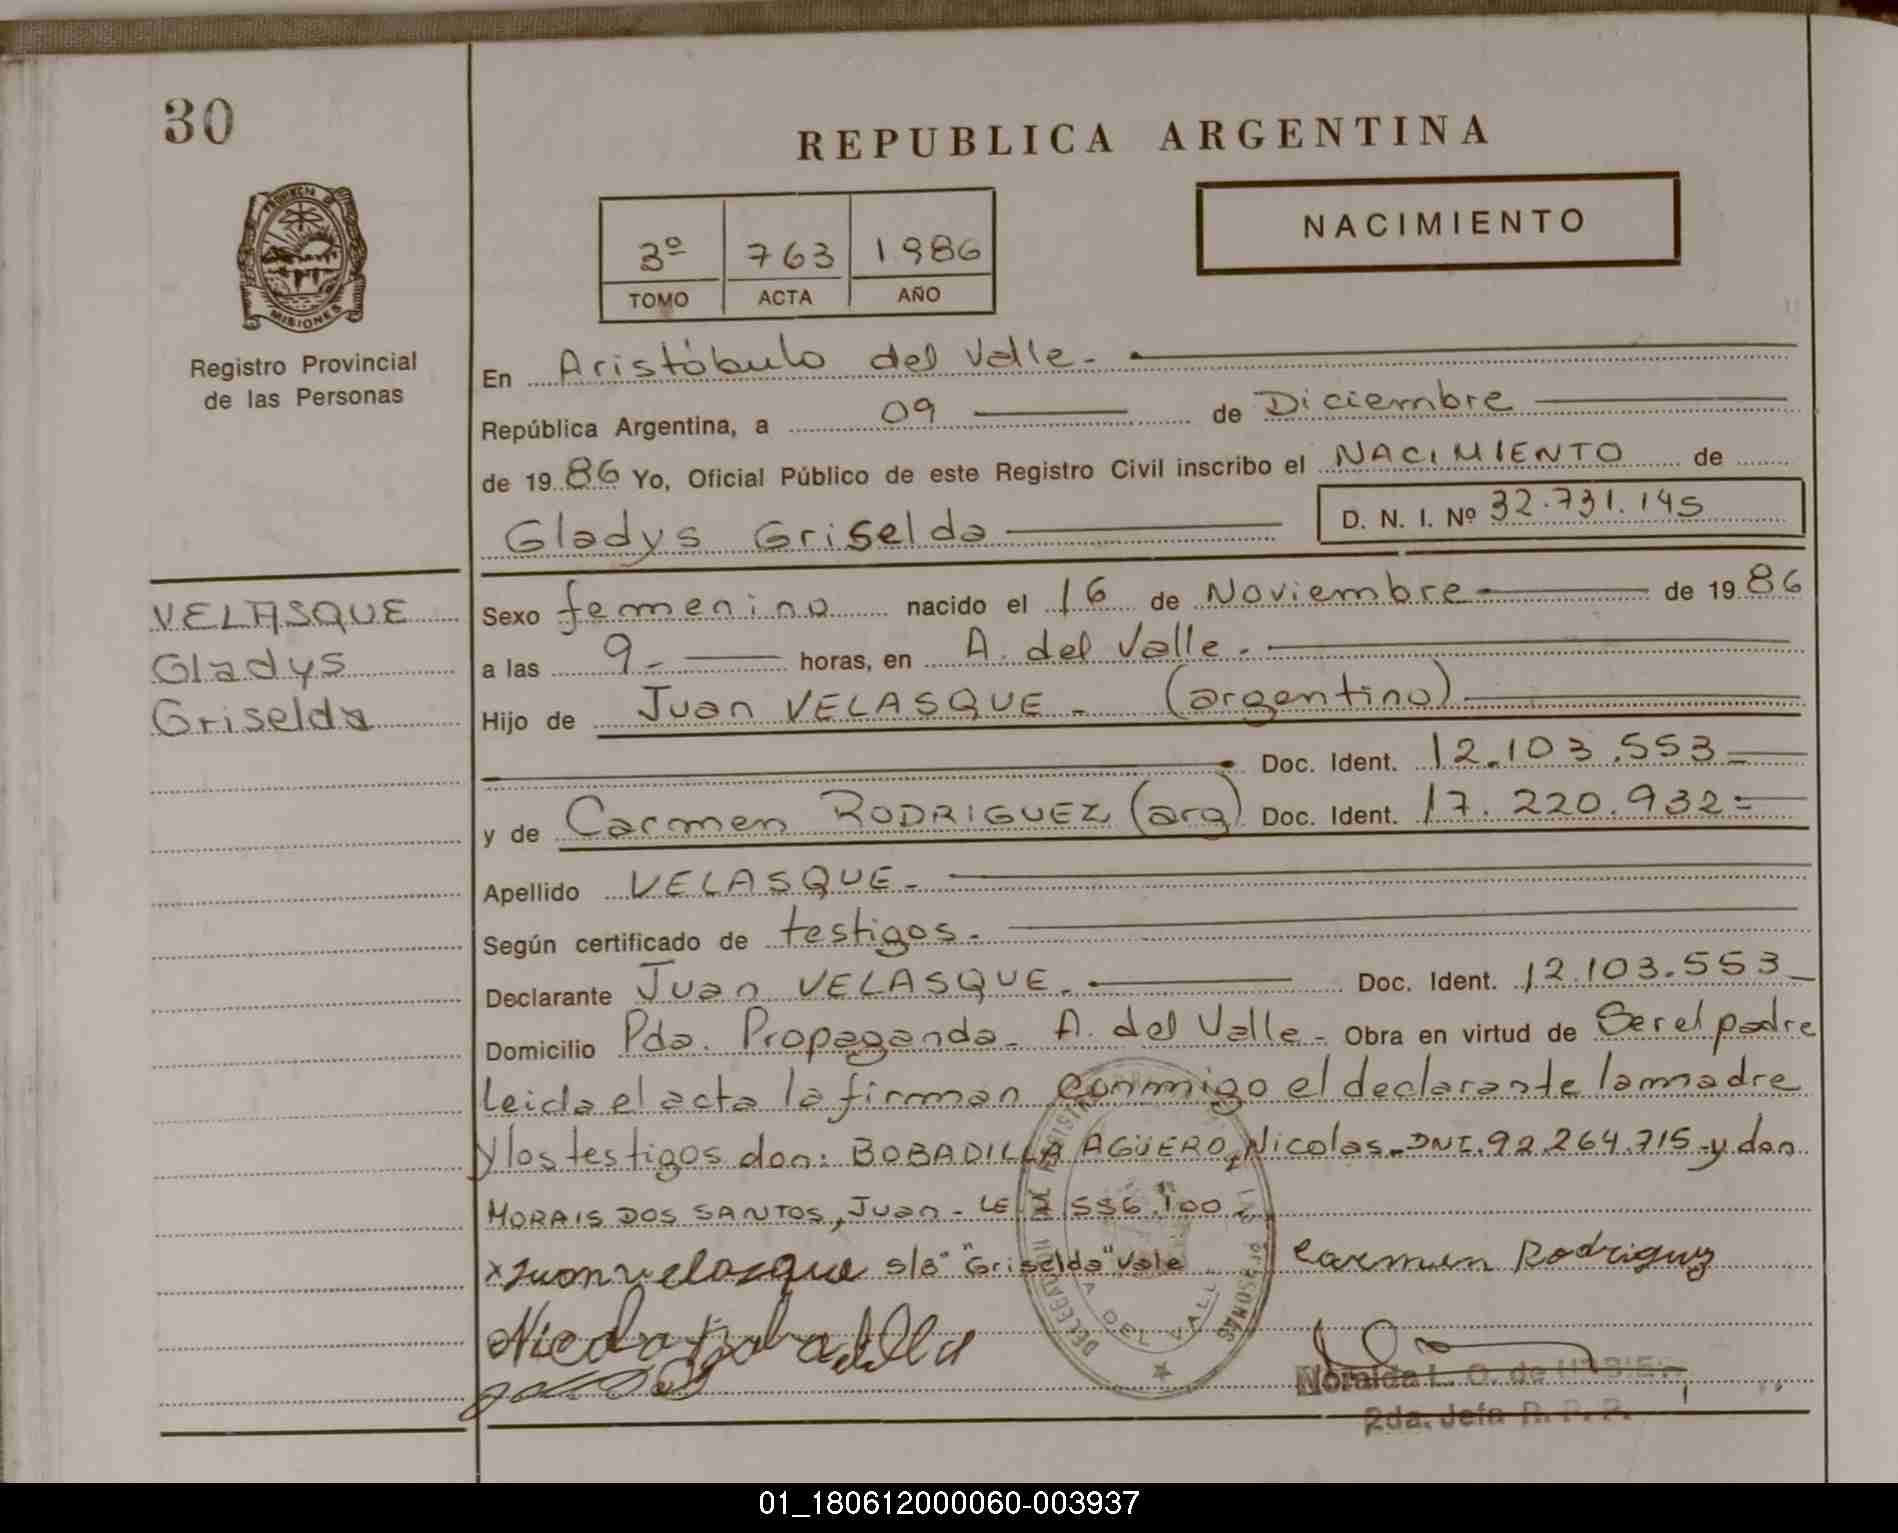 30
REPUBLICA ARGENTINA
PROVINCIA DE
MISIONES
Registro Provincial
de las Personas
3º 763 1986
TOMO ACTA AÑO
NACIMIENTO
En Aristóbulo del Valle.-
República Argentina, a 09 de Diciembre
de 1986 Yo, Oficial Público de este Registro Civil inscribo el NACIMIENTO de
Gladys Griselda D. N. I. Nº 32.731.145
VELASQUE
Gladys
Griselda
Sexo femenino nacido el 16 de Noviembre de 1986
a las 9.- horas, en A. del Valle.
Hijo de Juan VELASQUE - (argentino)
Doc. Ident. 12.103.553
y de Carmen RODRIGUEZ (arg) Doc. Ident. 17.220.932
Apellido VELASQUE.-
Según certificado de testigos.-
Declarante Juan VELASQUE.- Doc. Ident. 12.103.553
Domicilio Pda. Propaganda - A. del Valle - Obra en virtud de Ser el padre
leida el acta la firman conmigo el declarante la madre
y los testigos don: BOBADILLA AGÜERO, Nicolas - DNI. 92.264.715 - y don
MORAIS DOS SANTOS, Juan - LE 7.556.100
x Juan velasque s/b "Griselda" Vale Carmen Rodriguez
Nicola Bobadilla
DEL VALLE
Noralda L. O. de
2da. Jefa R. P. P.
01_180612000060-003937